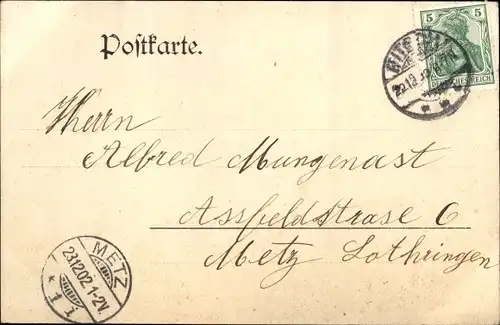 Postkarte.
5 5
22.12
REICH
Herrn
Alfred Mungenast
Assfeldstrase 6
Metz Lothringen
METZ
23.12.02. 1-2N.
* 1 i